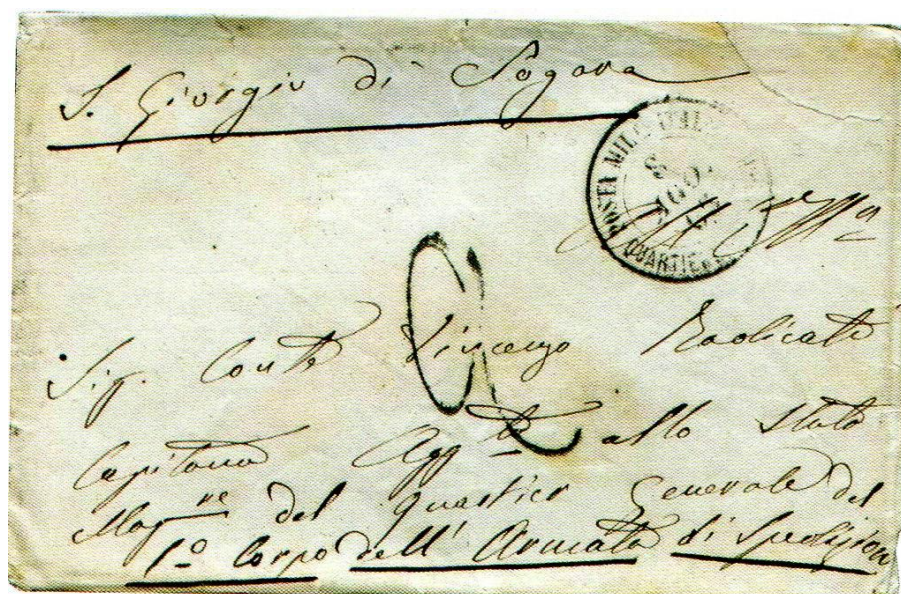 S. Giorgio di Nogara
POSTA MILIT. ITAL
8 AGO
QUARTIER
All' Ill.mo
Sig. Conte Vincenzo Radicati
Capitano Agg.to allo Stato
Mag.re del Quartier Generale del
1º Corpo dell' Armata di Spedizione